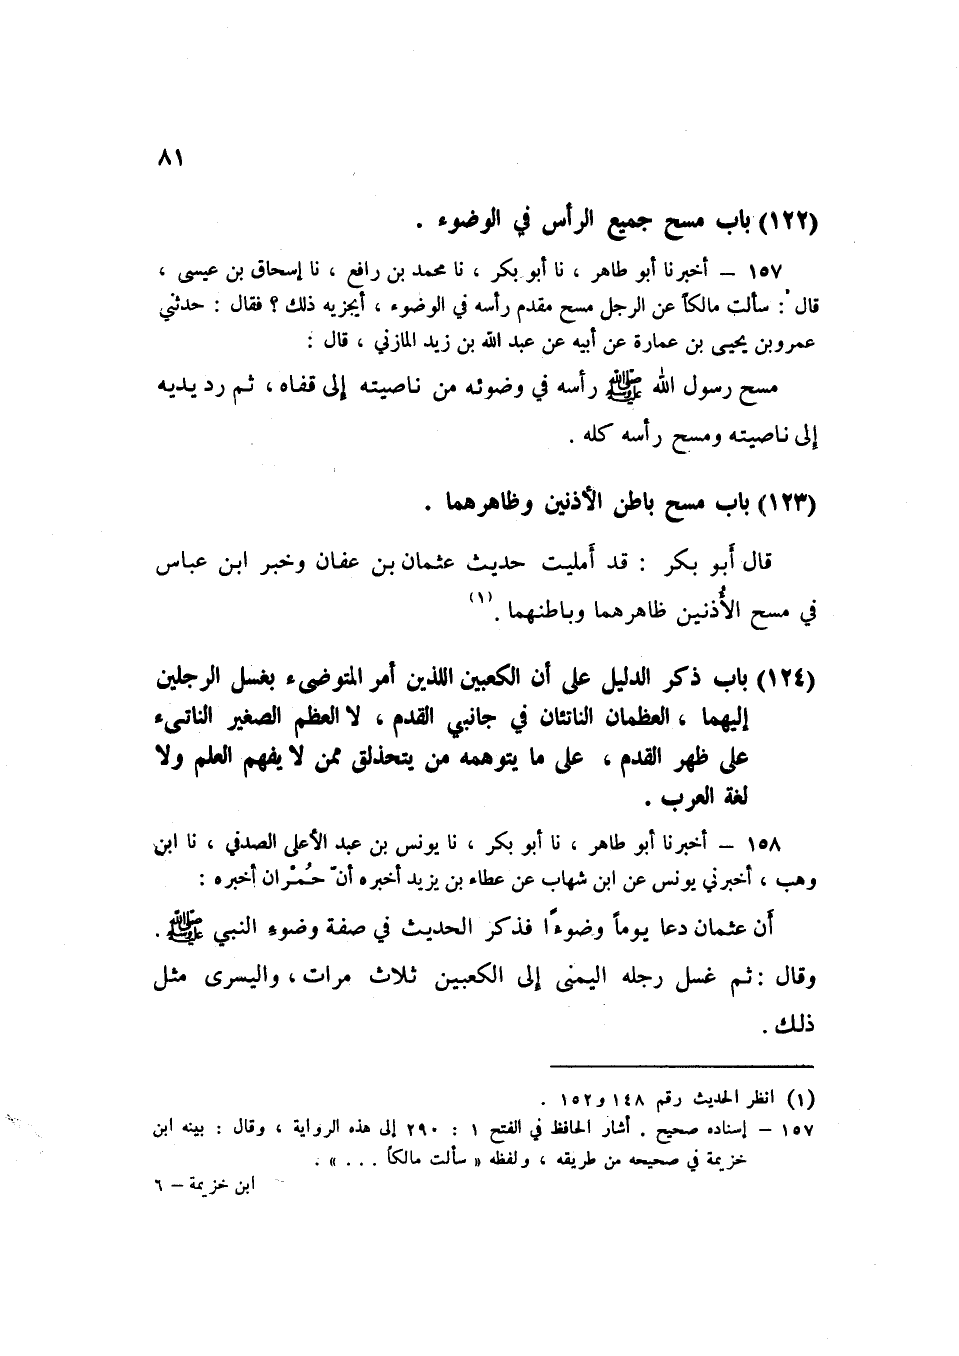 ٨١
(١٢٢) باب مسح جميع الرأس في الوضوء .
١٥٧ – أخبرنا أبو طاهر ، نا أبو بكر ، نا محمد بن رافع ، نا إسحاق بن عيسى ،
قال : سألت مالكاً عن الرجل مسح مقدم رأسه في الوضوء ، أيجزيه ذلك ؟ فقال : حدثني
عمرو بن يحيى بن عمارة عن أبيه عن عبد الله بن زيد المازني ، قال :
مسح رسول الله ﷺ رأسه في وضوئه من ناصيته إلى قفاه ، ثم رد يديه
إلى ناصيته ومسح رأسه كله .
(١٢٣) باب مسح باطن الأذنين وظاهرهما .
قال أَبو بكر : قد أَمليت حديث عثمان بن عفان وخبر ابن عباس
في مسح الأُذنين ظاهرهما وباطنهما .(١)
(١٢٤) باب ذكر الدليل على أن الكعبين اللذين أمر المتوضىء بغسل الرجلين
إليهما ، العظمان الناتئان في جانبي القدم ، لا العظم الصغير الناتىء
على ظهر القدم ، على ما يتوهمه من يتحذلق ممن لا يفهم العلم ولا
لغة العرب .
١٥٨ – أخبرنا أبو طاهر ، نا أبو بكر ، نا يونس بن عبد الأعلى الصدفي ، نا ابن
وهب ، أخبرني يونس عن ابن شهاب عن عطاء بن يزيد أخبره أنّ حُمْران أخبره :
أَن عثمان دعا يوماً وضوءًا فذكر الحديث في صفة وضوءِ النبي ﷺ .
وقال : ثم غسل رجله اليمنى إلى الكعبين ثلاث مرات ، واليسرى مثل
ذلك .
(١) انظر الحديث رقم ١٤٨ و ١٥٢ .
١٥٧ – إسناده صحيح . أشار الحافظ في الفتح ١ : ٢٩٠ إلى هذه الرواية ، وقال : بينه ابن
خزيمة في صحيحه من طريقه ، ولفظه « سألت مالكاً . . . » .
ابن خزيمة – ٦